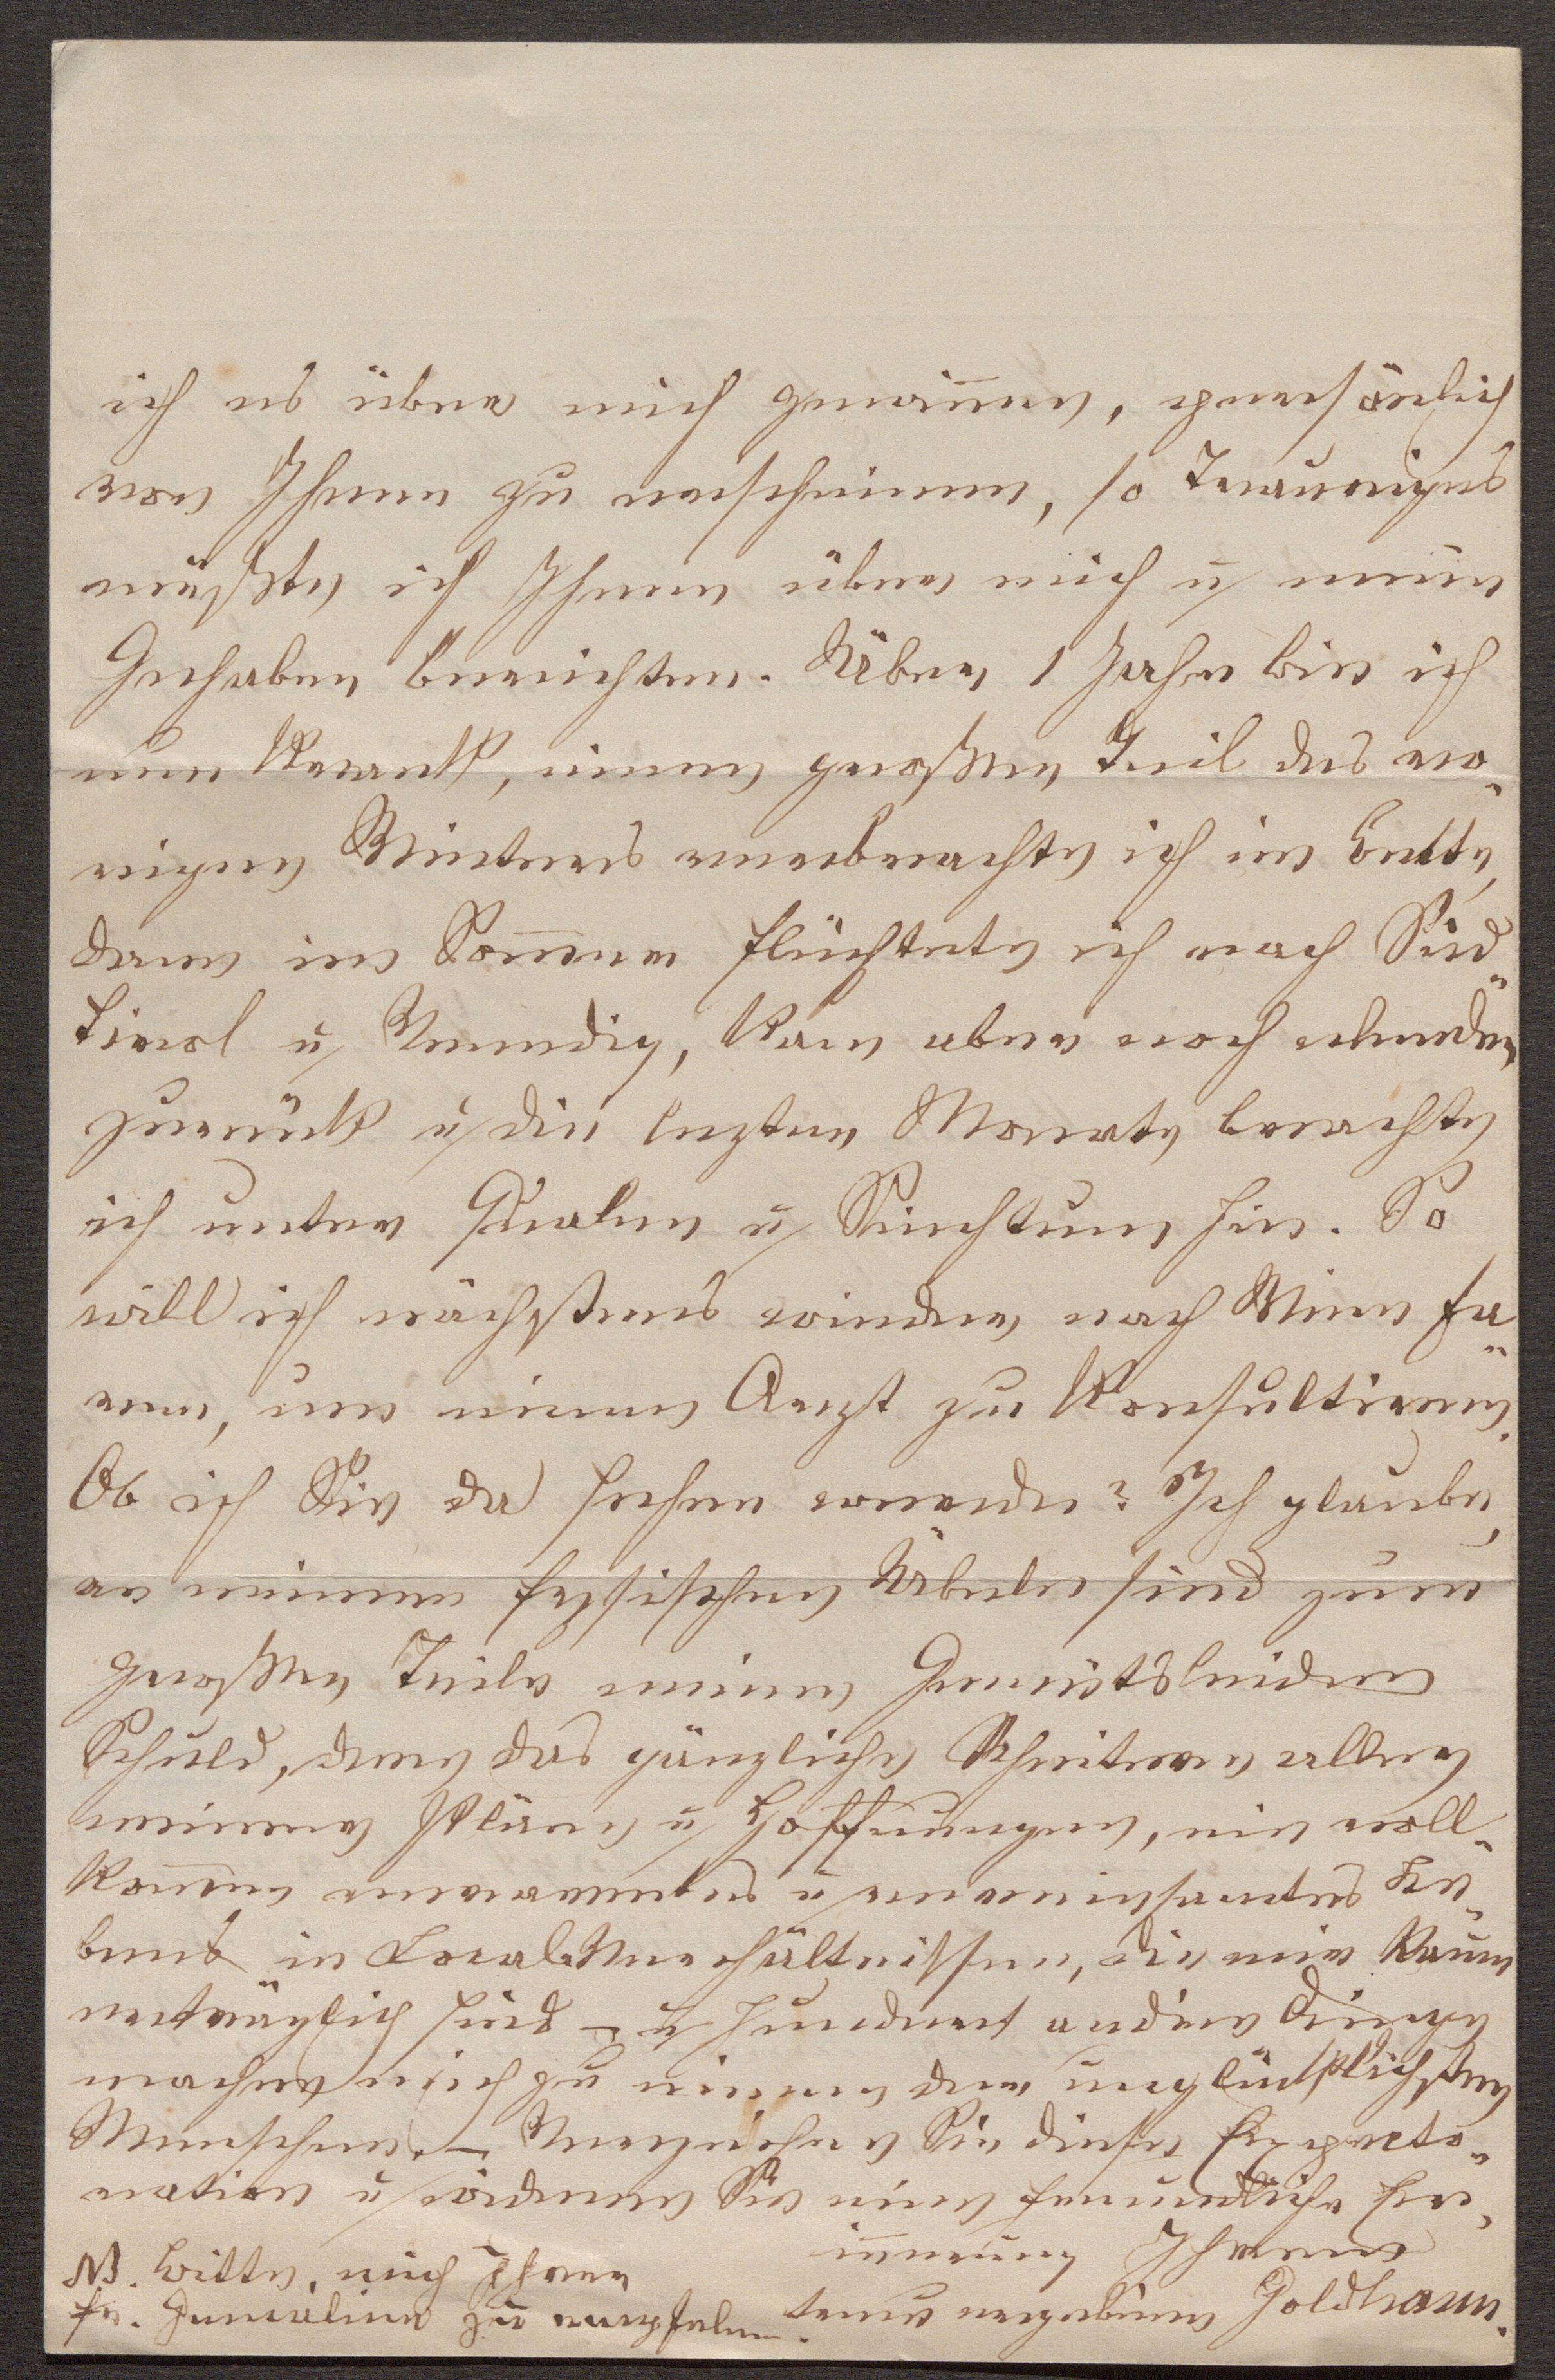 ich es über mich gewinnen, persönlich
vor Ihnen zu erscheinen, so Trauriges
müßte ich Ihnen über mich u mein
Gehaben berichten. Über 1 Jahr bin ich
nun krank, einen großen Teil des vo-
rigen Winters verbrachte ich im Bette,
dann im Sommer flüchtete ich nach Süd-
tirol u Venedig, kam aber noch elender
zurück u die lezten Monate brachte
ich unter Qualen u Siechtum hin. So
will ich nächstens wieder nach Wien fa-
ren, um einen Arzt zu konsultieren.
Ob ich Sie da sehen werde? Ich glaube,
an meinem fysischen Übeln sind zum
großen Teile meine Gemütsleiden
Schuld, denn das gänzliche Scheitern aller
meiner Pläne u Hoffnungen, ein voll-
kommen verarmtes u vereinsamtes Le-
ben in Localverhältnissen, die mir kaum
erträglich sind – u hundert andere Dinge
machen mich zu einem der unglücklichsten
Menschen. – Verzeihen Sie diese Expecto-
ration u widmen Sie eine freundliche Er-
innerung Ihrem
treu ergebenen Goldhann.
NB. Bitte, mich Ihrer
Fr. Gemalin zu empfelen.